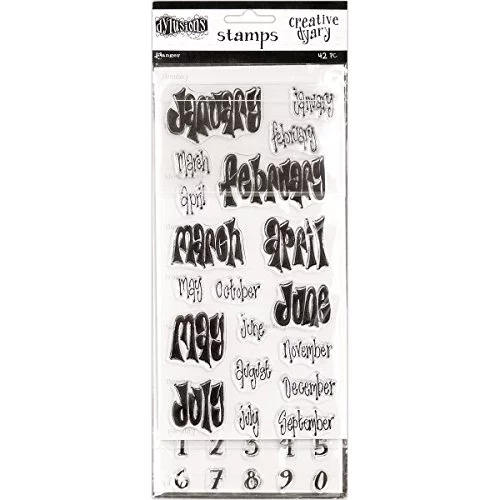 dylusions
stamps
creative
dyary
Ranger
42 PC
january
january
february
march
february
april
march
april
may
october
june
may
june
november
august
december
july
july
september
1 2 3 4 5
6 7 8 9 0